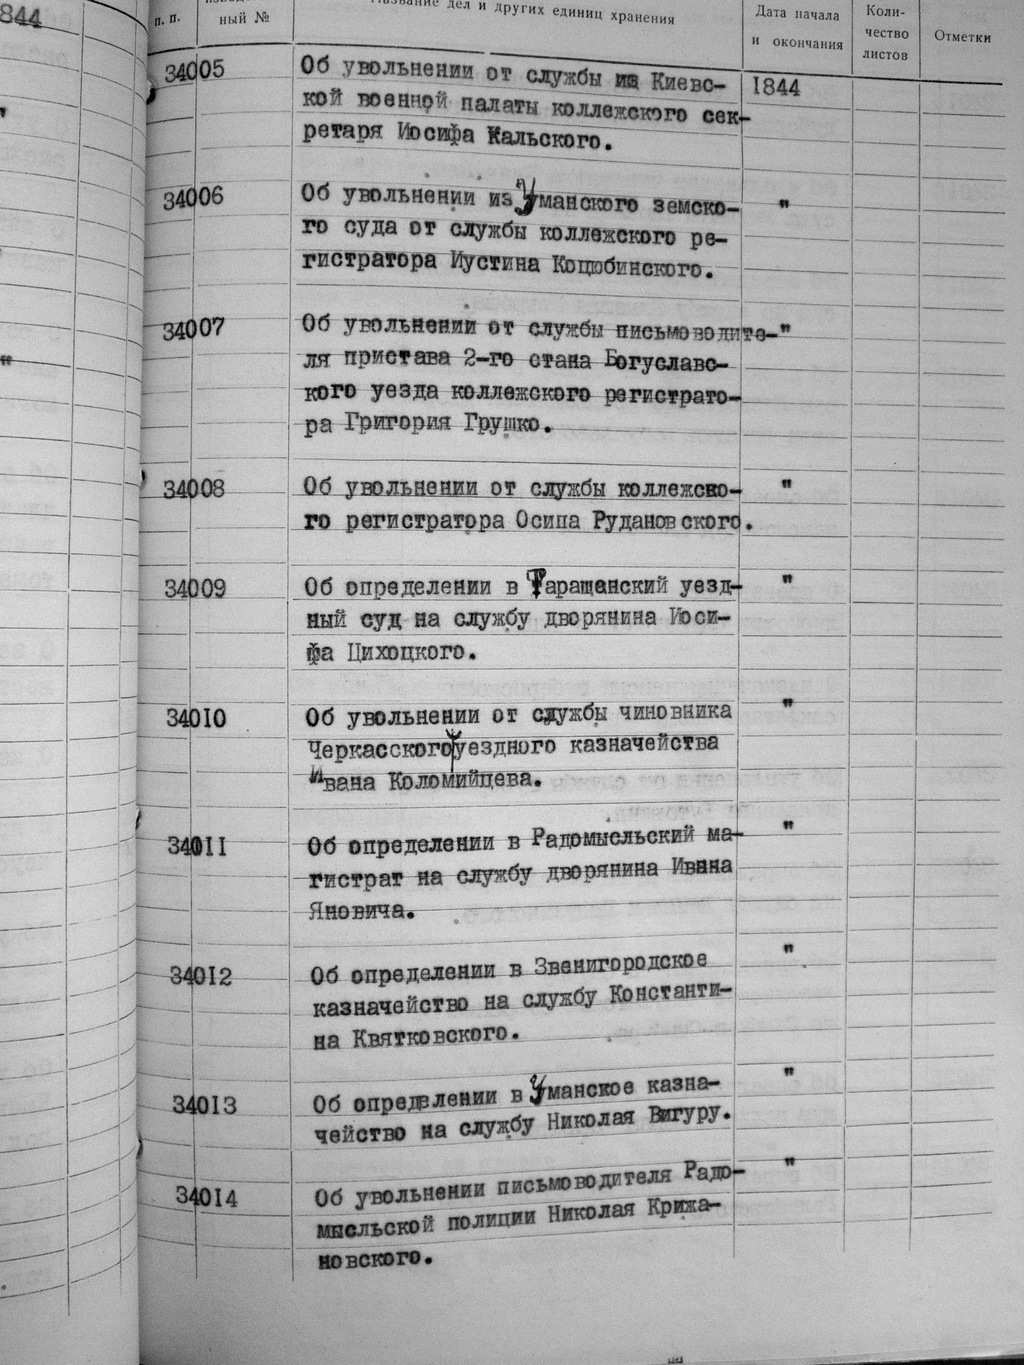 844
п. п.
ный №
Название дел и других единиц хранения
Дата начала
и окончания
Коли-
чество
листов
Отметки
34005 Об увольнении от службы из Киевс- 1844
кой военной палаты коллежского сек-
ретаря Иосифа Кальского.
34006 Об увольнении из Уманского земско- "
го суда от службы коллежского ре-
гистратора Иустина Коцюбинского.
34007 Об увольнении от службы письмоводите-"
ля пристава 2-го стана Богуславс-
кого уезда коллежского регистрато-
ра Григория Грушко.
34008 Об увольнении от службы коллежско- "
го регистратора Осипа Рудановского.
34009 Об определении в Таращанский уезд- "
ный суд на службу дворянина Иоси-
фа Цихоцкого.
34010 Об увольнении от службы чиновника "
Черкасского уездного казначейства
Ивана Коломийцева.
34011 Об определении в Радомысльский ма- "
гистрат на службу дворянина Ивана
Яновича.
34012 Об определении в Звенигородское "
казначейство на службу Константи-
на Квятковского.
34013 Об определении в Уманское казна- "
чейство на службу Николая Вигуру.
34014 Об увольнении письмоводителя Радо- "
мысльской полиции Николая Крижа-
новского.